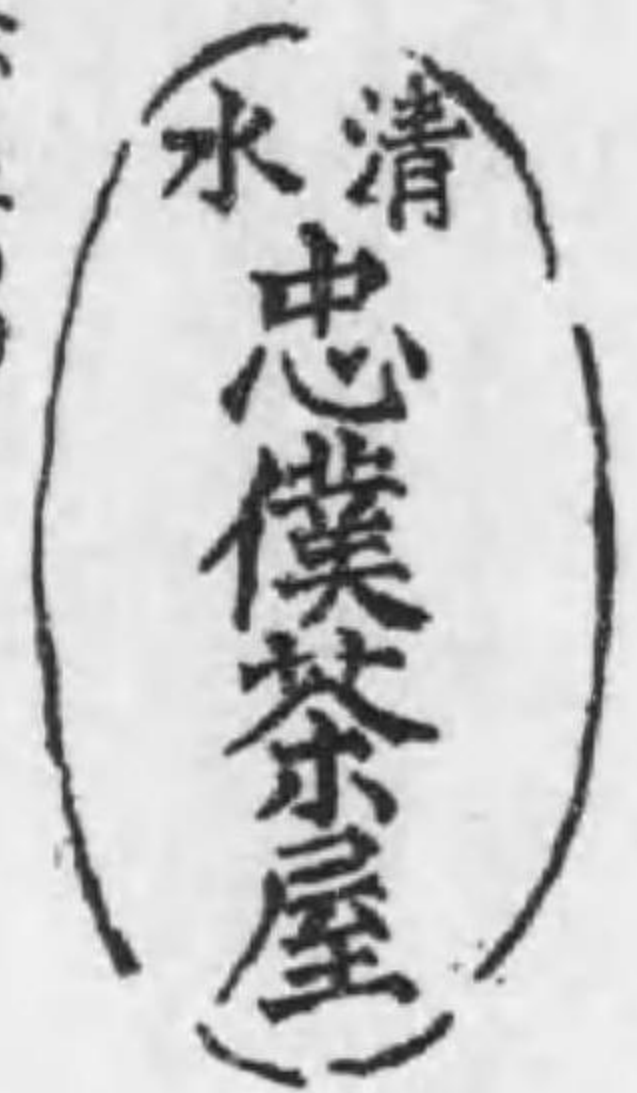 清水
忠僕茶屋